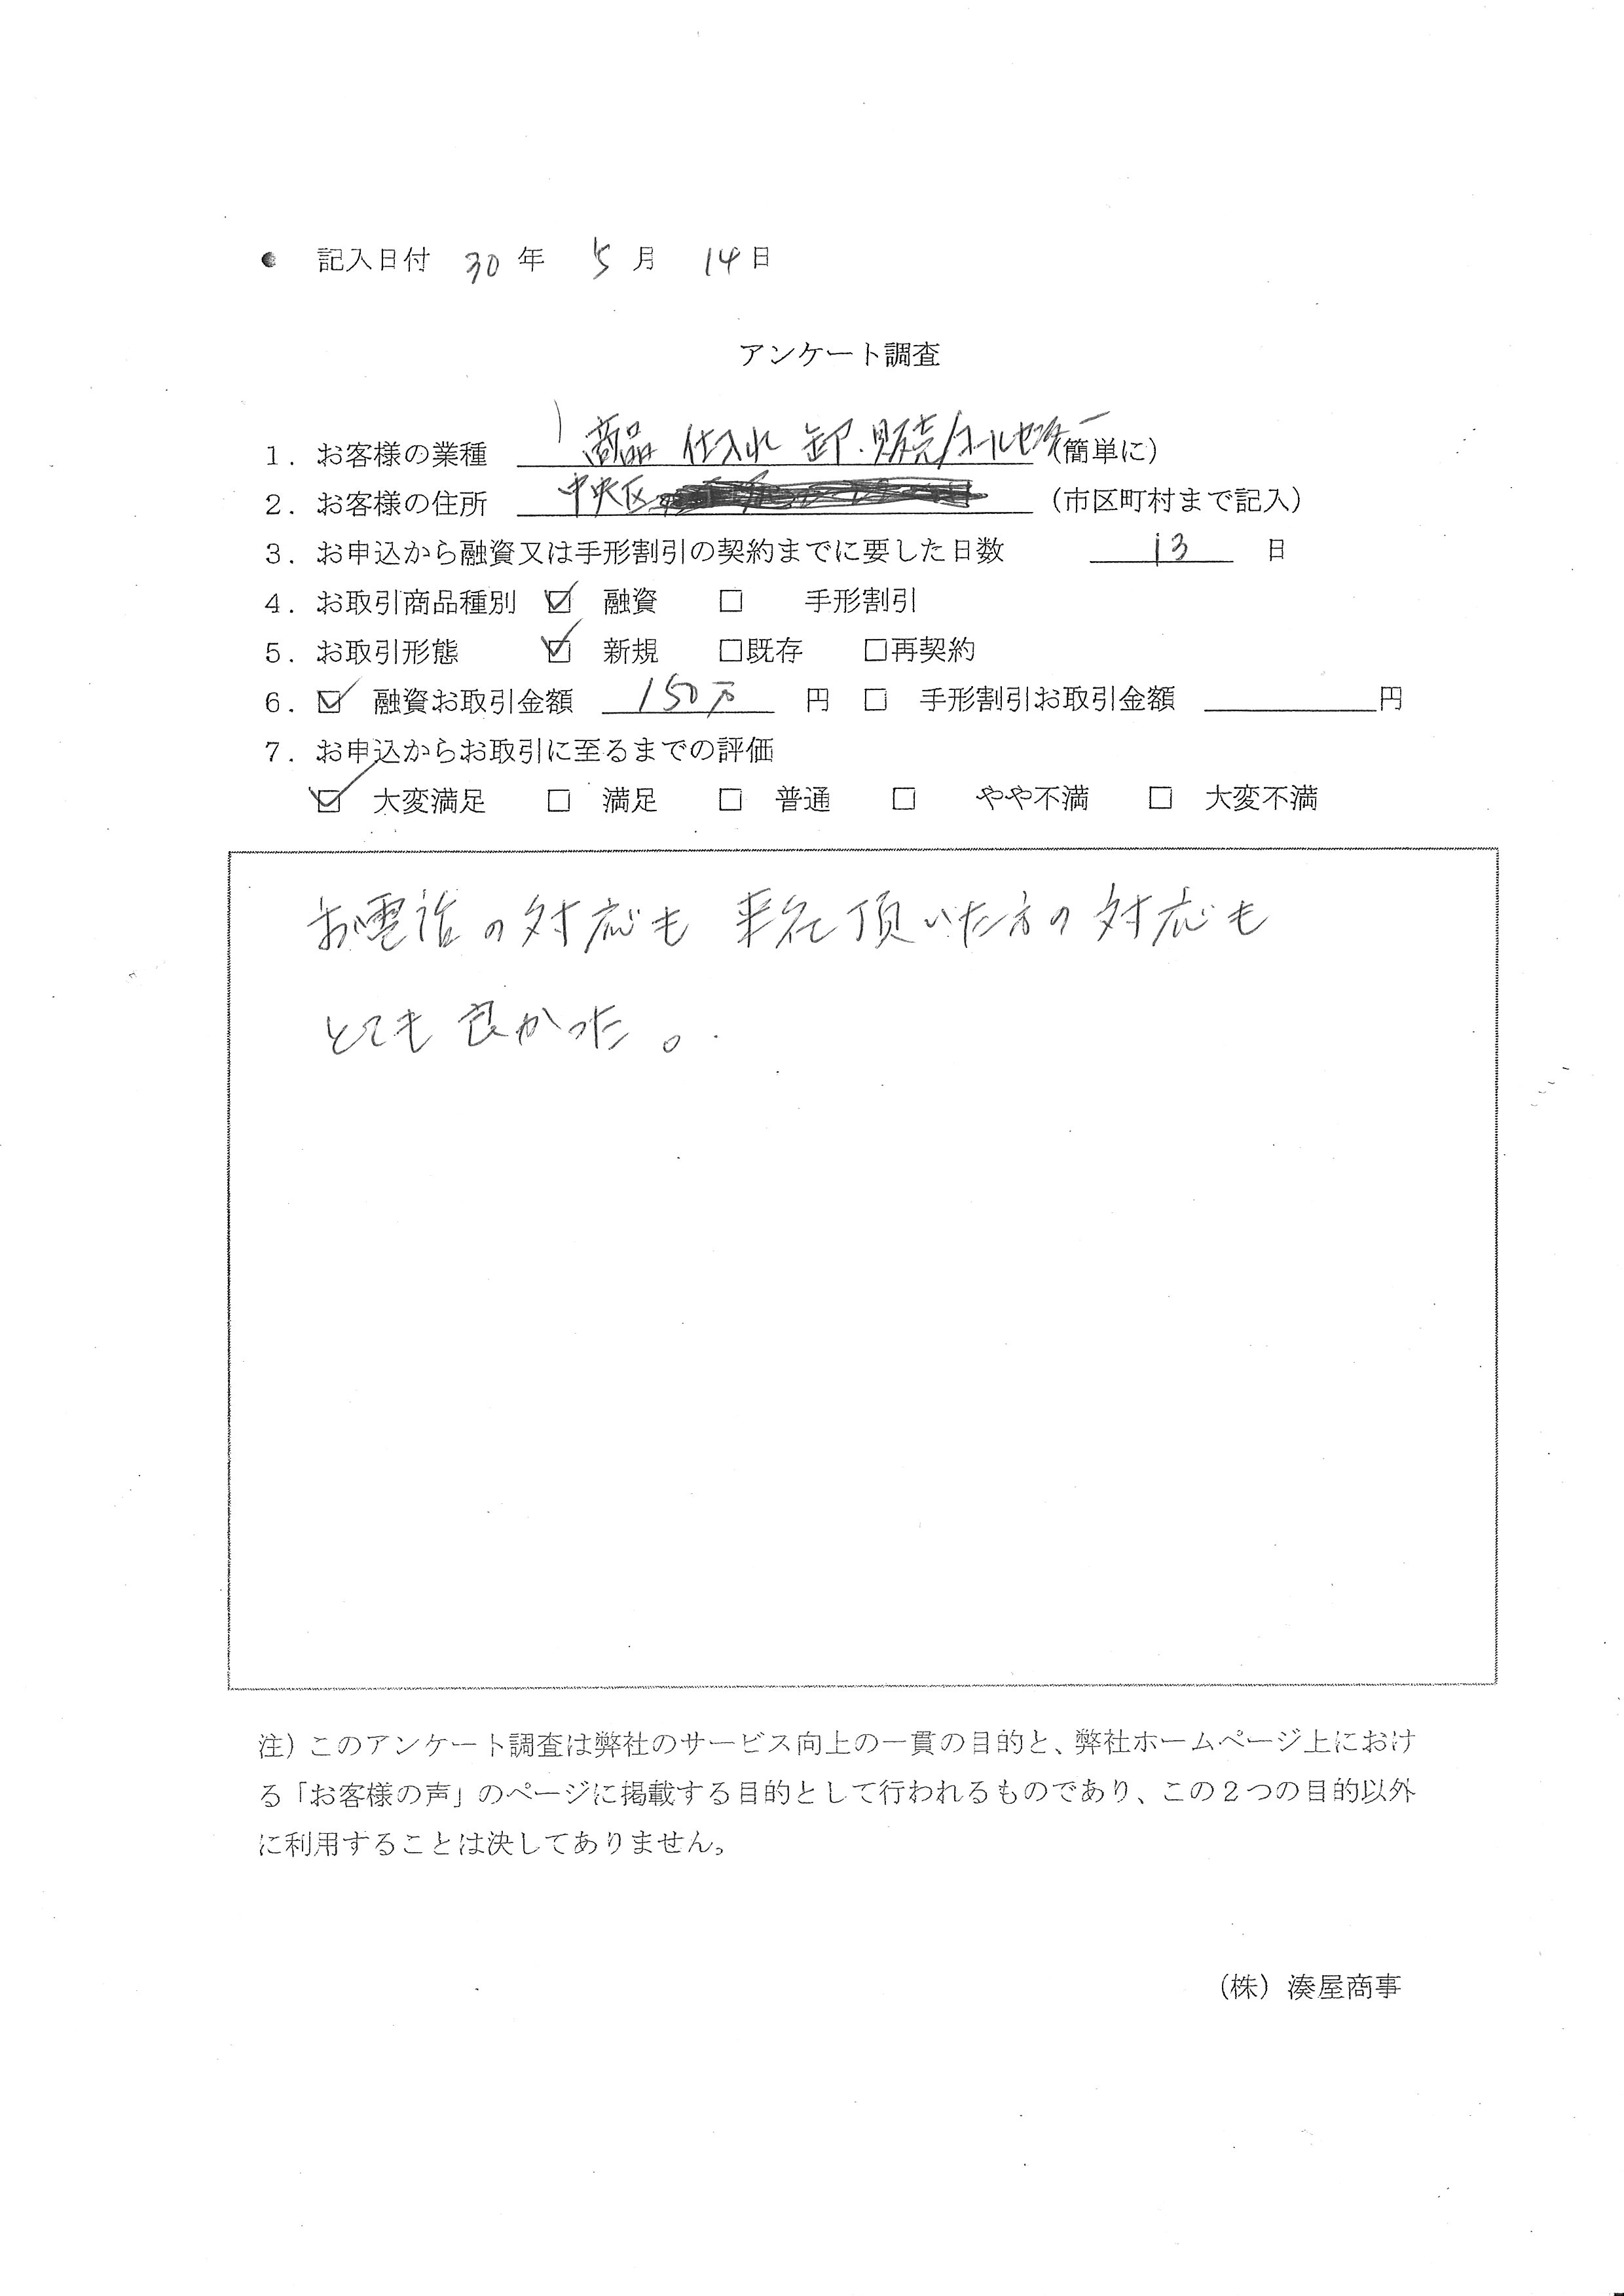 ● 記入日付 30年 5月 14日
アンケート調査
1. お客様の業種 商品 仕入れ 卸・販売/コールセンター(簡単に)
2. お客様の住所 中央区 (市区町村まで記入)
3. お申込から融資又は手形割引の契約までに要した日数 13 日
4. お取引商品種別 ☑ 融資 □ 手形割引
5. お取引形態 ☑ 新規 □既存 □再契約
6. ☑ 融資お取引金額 150万 円 □ 手形割引お取引金額 円
7. お申込からお取引に至るまでの評価
☑ 大変満足 □ 満足 □ 普通 □ やや不満 □ 大変不満
お電話の対応も 来社頂いた方の対応も
とても良かった。
注)このアンケート調査は弊社のサービス向上の一貫の目的と、弊社ホームページ上におけ
る「お客様の声」のページに掲載する目的として行われるものであり、この2つの目的以外
に利用することは決してありません。
(株)湊屋商事